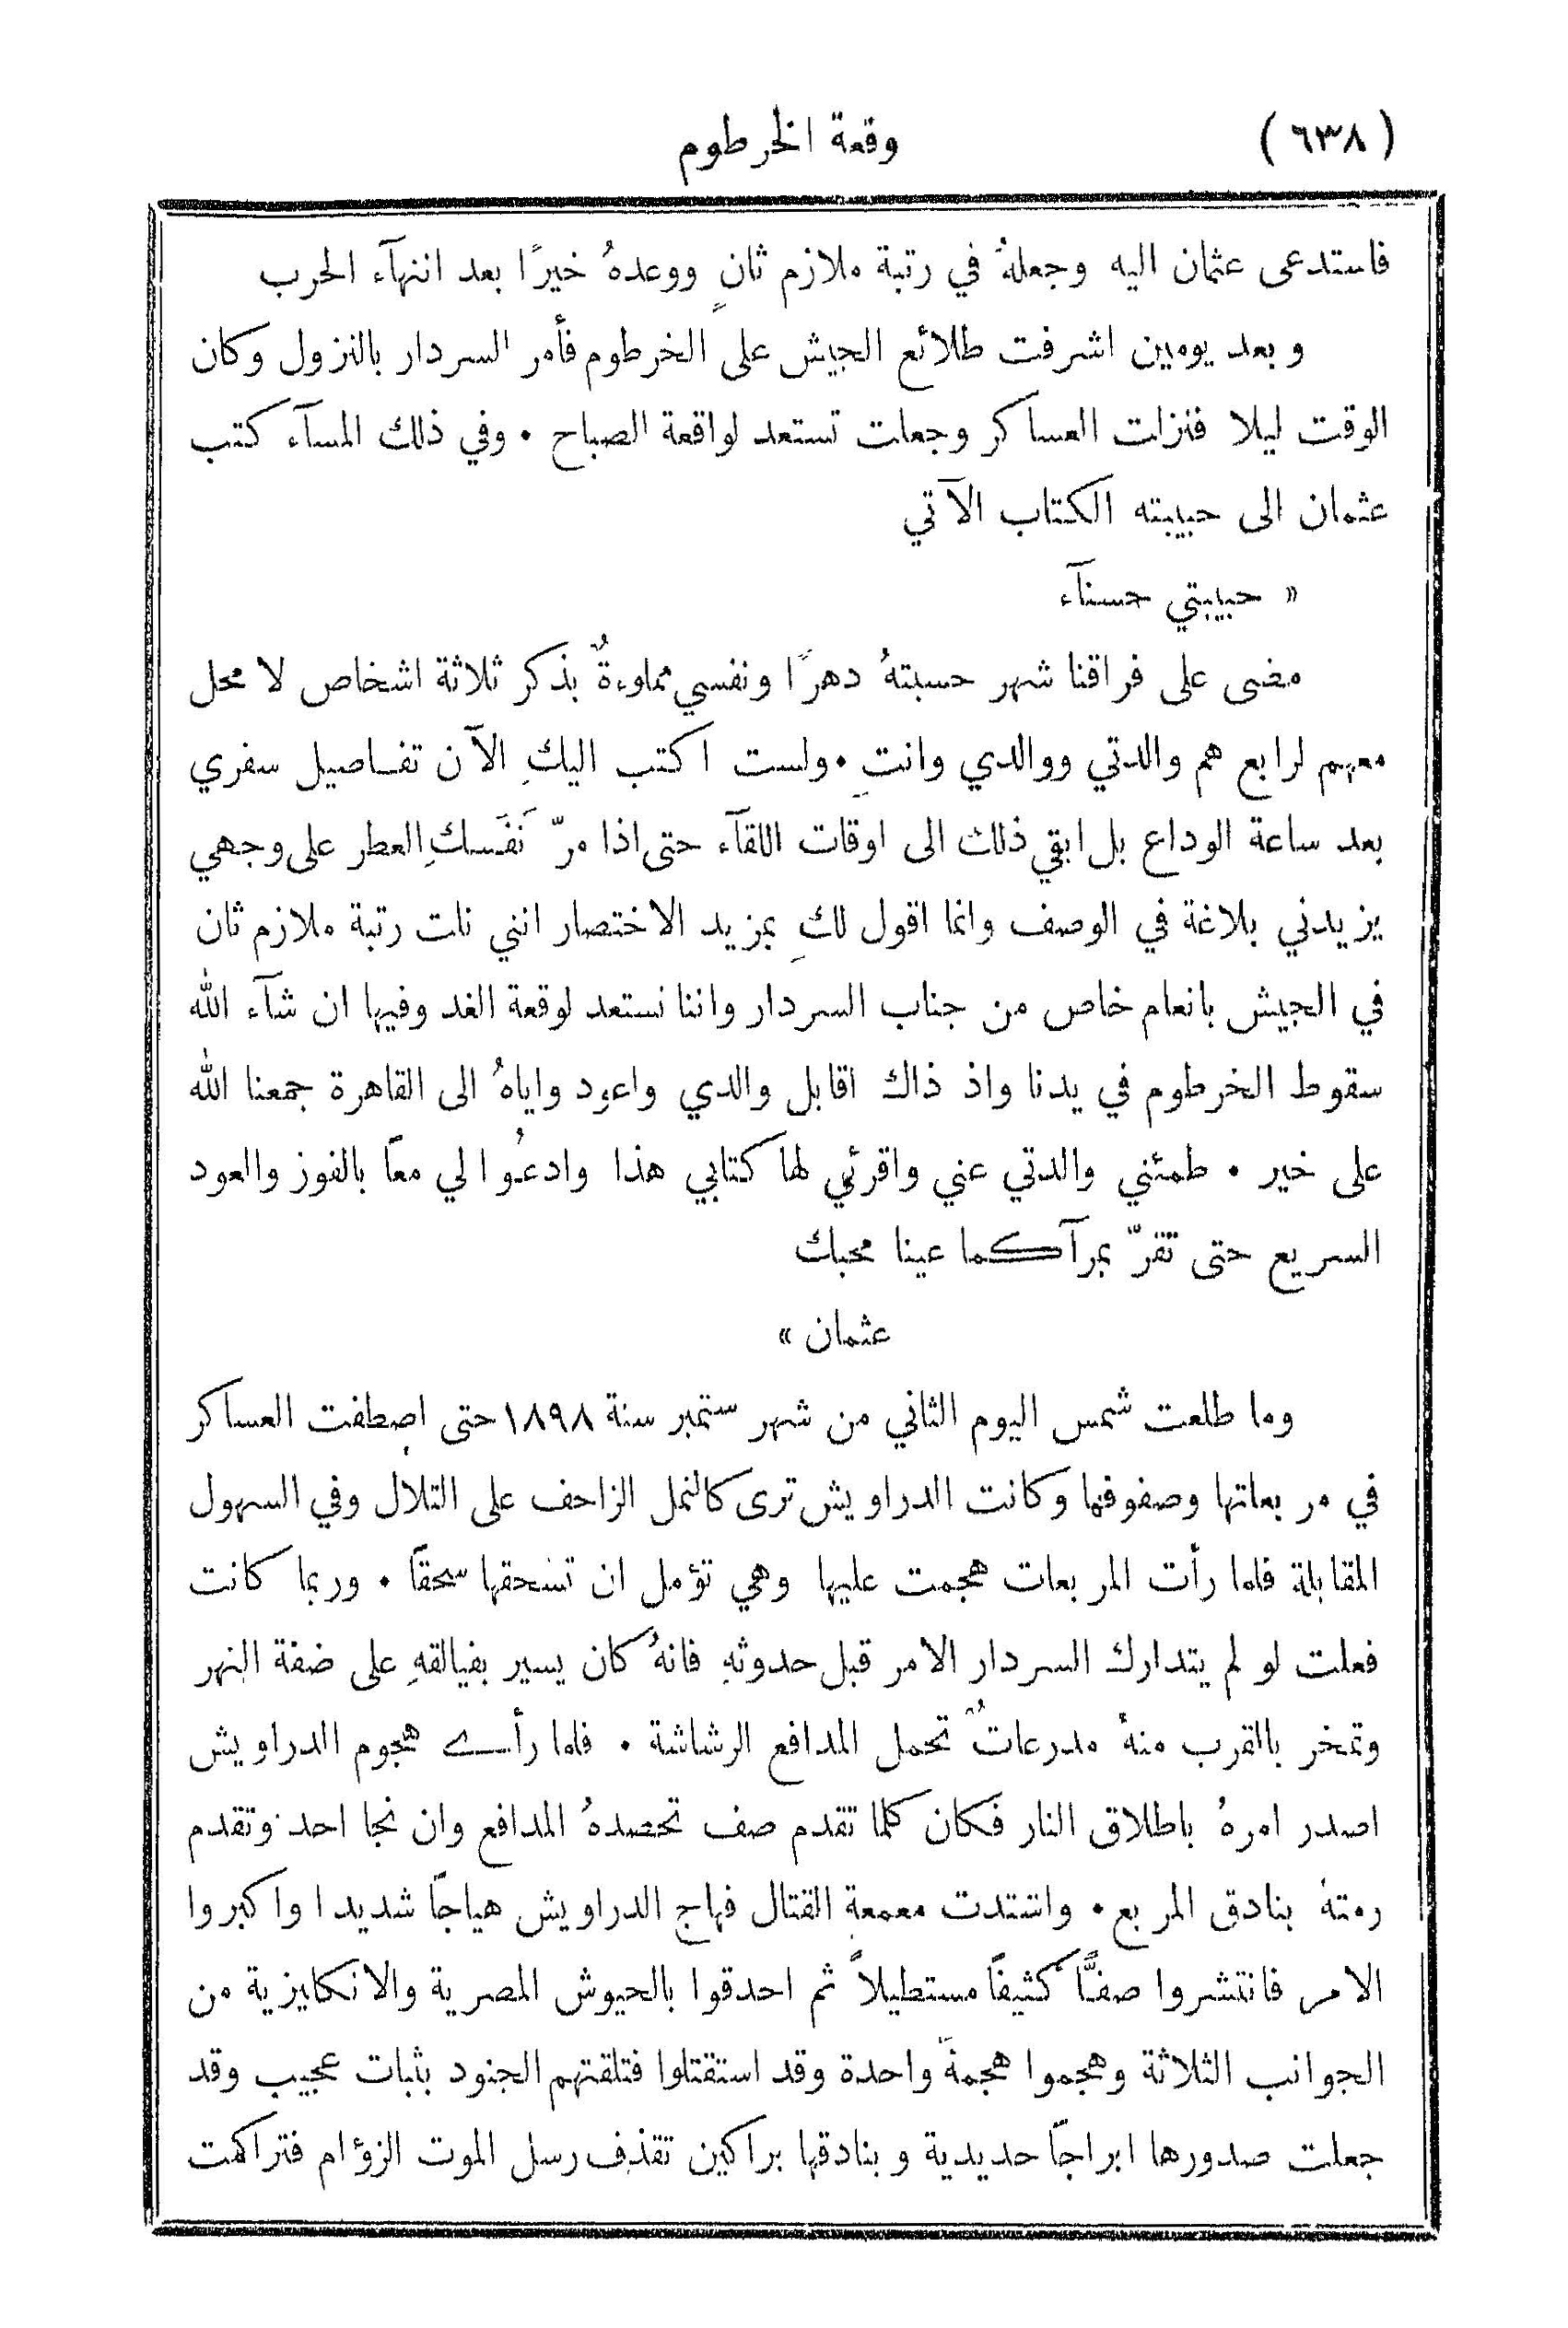 (٦٣٨) وقعة الخرطوم
فاستدعى عثمان اليه وجعلهُ في رتبة ملازم ثانٍ ووعدهُ خيرًا بعد انتهآء الحرب
وبعد يومين اشرفت طلائع الجيش على الخرطوم فأمر السردار بالنزول وكان
الوقت ليلا فنزلت العساكر وجعلت تستعد لواقعة الصباح ٠ وفي ذلك المسآء كتب
عثمان الى حبيبته الكتاب الآتي
« حبيبتي حسنآء
مضى على فراقنا شهر حسبتهُ دهرًا ونفسي مملوءةٌ بذكر ثلاثة اشخاص لا محل
معهم لرابع هم والدتي ووالدي وانتِ ٠ ولست اكتب اليكِ الآن تفاصيل سفري
بعد ساعة الوداع بل ابقي ذلك الى اوقات اللقآء حتى اذا مرّ نَفَسكِ العطر على وجهي
يزيدني بلاغة في الوصف وانما اقول لكِ بمزيد الاختصار انني نلت رتبة ملازم ثان
في الجيش بانعام خاص من جناب السردار واننا نستعد لوقعة الغد وفيها ان شآء الله
سقوط الخرطوم في يدنا واذ ذاك اقابل والدي واعود واياهُ الى القاهرة جمعنا الله
على خير ٠ طمئني والدتي عني واقرئي لها كتابي هذا وادعُوا لي معًا بالفوز والعود
السريع حتى تقرّ بمرآكما عينا محبك
عثمان »
وما طلعت شمس اليوم الثاني من شهر ستمبر سنة ١٨٩٨ حتى اصطفت العساكر
في مربعاتها وصفوفها وكانت الدراويش ترى كالنمل الزاحف على التلال وفي السهول
المقابلة فلما رأت المربعات هجمت عليها وهي تؤمل ان تسحقها سحقًا ٠ وربما كانت
فعلت لو لم يتدارك السردار الامر قبل حدوثهِ فانهُ كان يسير بفيالقهِ على ضفة النهر
وتمخر بالقرب منهُ مدرعاتٌ تحمل المدافع الرشاشة ٠ فلما رأى هجوم الدراويش
اصدر امرهُ باطلاق النار فكان كلما تقدم صف تحصدهُ المدافع وان نجا احد وتقدم
رمتهُ بنادق المربع ٠ واشتدت معمعة القتال فهاج الدراويش هياجًا شديدا واكبروا
الامر فانتشروا صفًّا كثيفًا مستطيلاً ثم احدقوا بالجيوش المصرية والانكليزية من
الجوانب الثلاثة وهجموا هجمةً واحدة وقد استقتلوا فتلقتهم الجنود بثبات عجيب وقد
جعلت صدورها ابراجًا حديدية وبنادقها براكين تقذف رسل الموت الزؤام فتراكمت